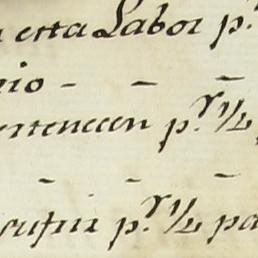 esta Labor p.r
nio - - -
ertenecen p.r 1/2
- - -
sufrir p.r 1/2 pa